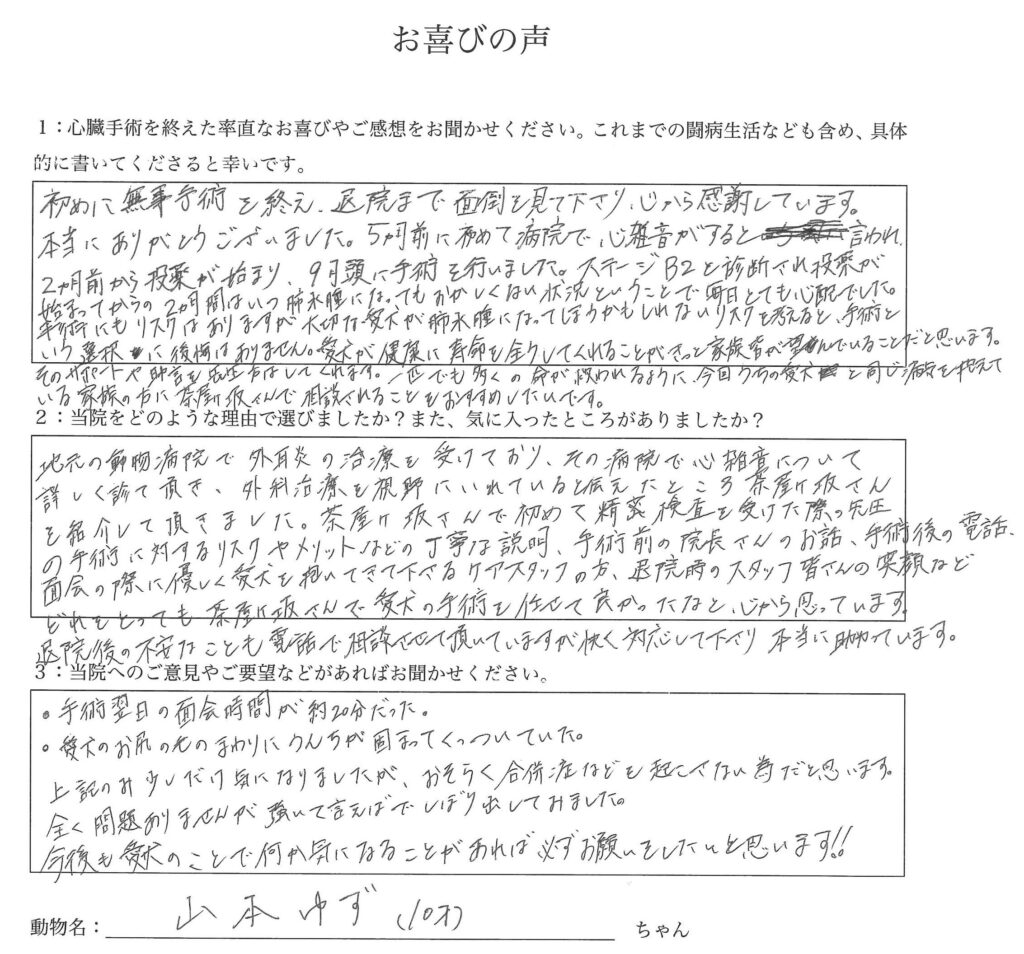 お喜びの声
1：心臓手術を終えた率直なお喜びやご感想をお聞かせください。これまでの闘病生活なども含め、具体
的に書いてくださると幸いです。
初めに無事手術を終え、退院まで面倒を見て下さり、心から感謝しています。
本当にありがとうございました。5ヵ月前に初めて病院で心雑音がすると言われ、
2ヵ月前から投薬が始まり、9月頭に手術を行いました。ステージB2と診断され投薬が
始まってからの2ヵ月間はいつ肺水腫になってもおかしくない状況ということで毎日とても心配でした。
手術にもリスクはありますが大切な愛犬が肺水腫になってしまうかもしれないリスクを考えると、手術と
いう選択に後悔はありません。愛犬が健康に寿命を全うしてくれることがきっと家族皆が望んでいることだと思います。
そのサポートや助言を先生方はしてくれます。一匹でも多くの命が救われるように、今回うちの愛犬と同じ病気を抱えて
いる家族の方に茶屋ヶ坂さんで相談されることをおすすめしたいです。
2：当院をどのような理由で選びましたか？また、気に入ったところがありましたか？
地元の動物病院で外耳炎の治療を受けており、その病院で心雑音について
詳しく診て頂き、外科治療を視野にいれていると伝えたところ茶屋ヶ坂さん
を紹介して頂きました。茶屋ヶ坂さんで初めて精密検査を受けた際の先生
の手術に対するリスクやメリットなどの丁寧な説明、手術前の院長さんのお話、手術後の電話、
面会の際に優しく愛犬を抱いてきて下さるケアスタッフの方、退院時のスタッフ皆さんの笑顔など
どれをとっても茶屋ヶ坂さんで愛犬の手術を任せて良かったなと、心から思っています。
退院後の不安なことも電話で相談させて頂いていますが快く対応して下さり本当に助かっています。
3：当院へのご意見やご要望などがあればお聞かせください。
・手術翌日の面会時間が約20分だった。
・愛犬のお尻の毛のまわりにうんちが固まってくっついていた。
上記のみ少しだけ気になりましたが、おそらく合併症などを起こさない為だと思います。
全く問題ありませんが強いて言えばでしぼり出してみました。
今後も愛犬のことで何か気になることがあれば必ずお願いをしたいと思います!!
動物名：山本ゆず(10才)ちゃん